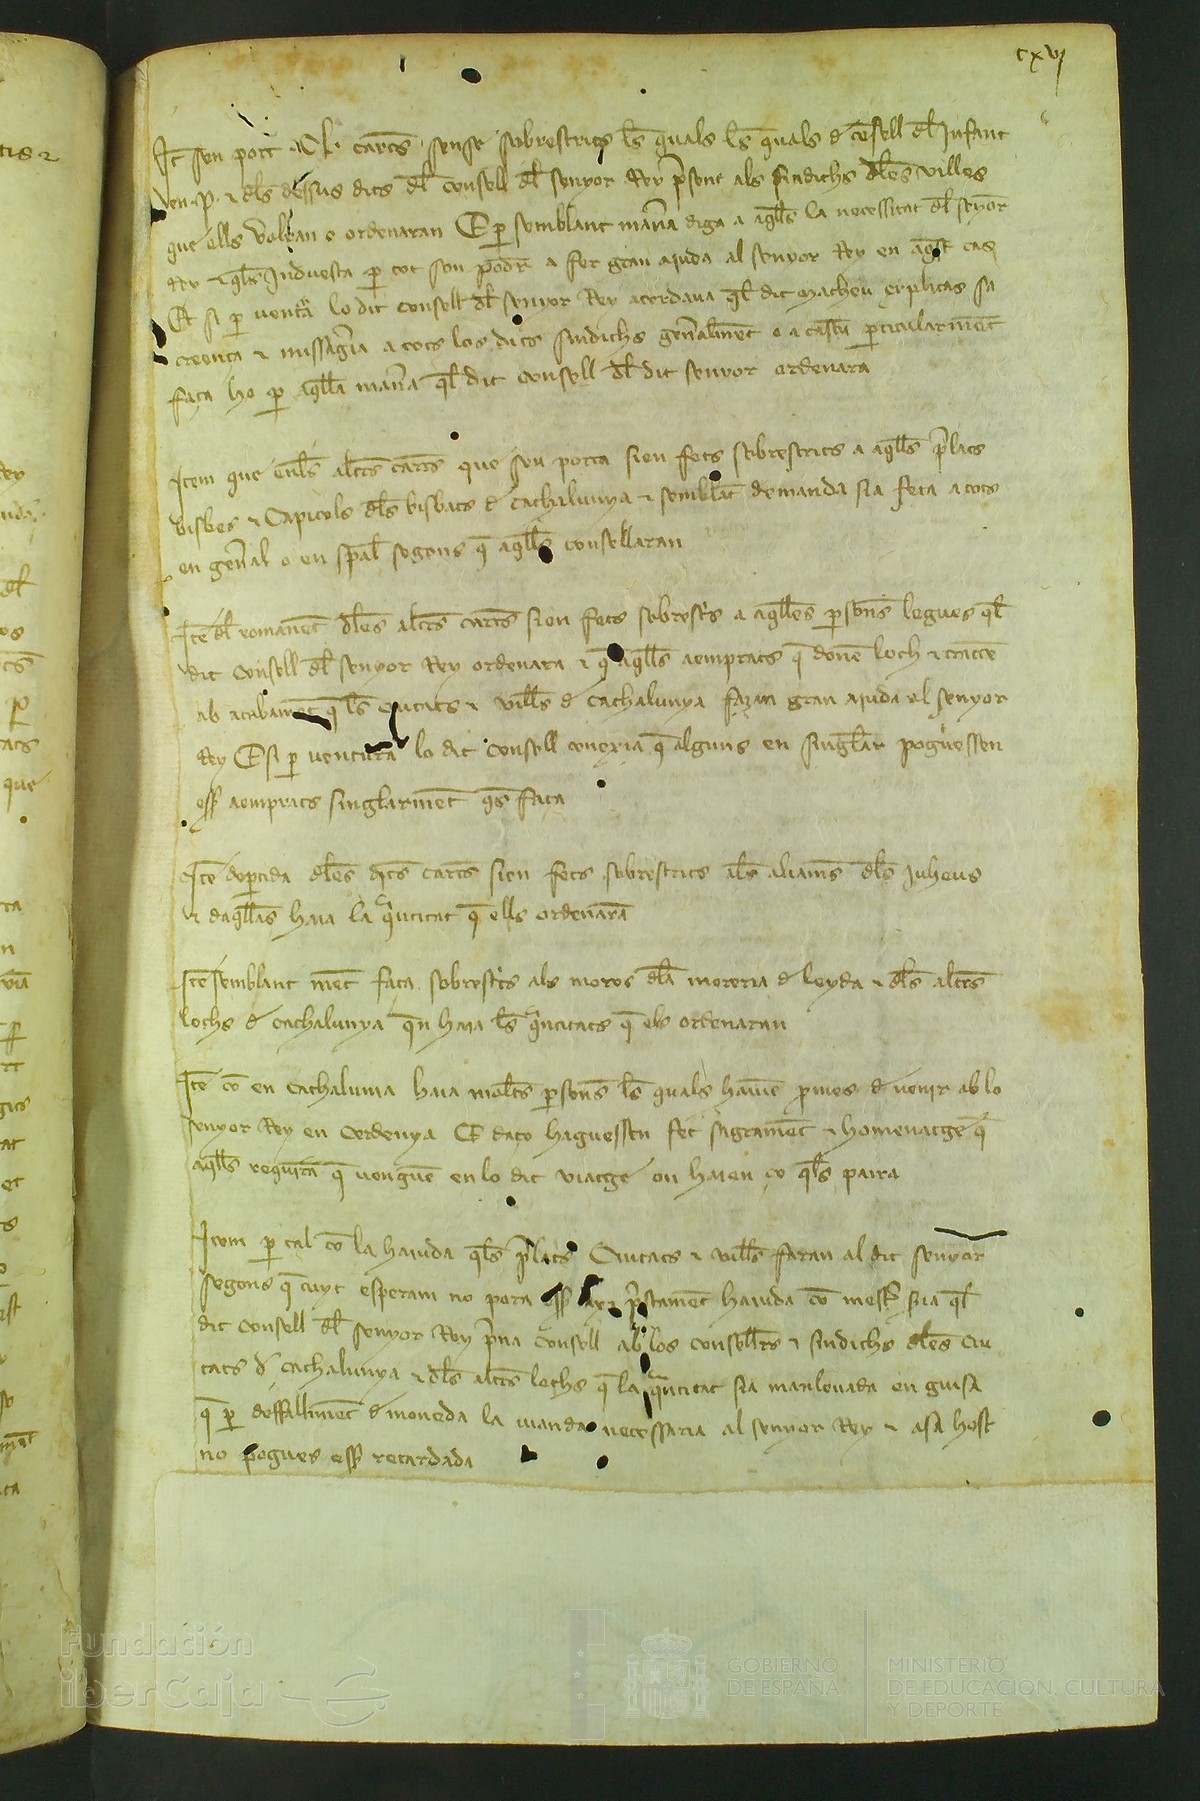 cxvj
Jt sen port .CL. cartes sense sobrescrits les quals les quals d consell dl Infant
en .P. & dls dessus dits dl consell dl senyor Rey psent als sindichs dles villes
que ells volran e ordenaran E p semblant manera diga a aqlls la necessitat dl senyor
Rey & qls Induesta p tot son poder a fer gran aiuda al senyor Rey en aqst cas
Et si p ventura lo dit consell dl senyor Rey acordava ql dit Matheu explicas sa
creença & missatgia a tots los dits sindichs genalment o a cascu pticularment
faça ho p aqlla manera ql dit consell dl dit senyor ordenara
Item que en les altres cartes que sen porta sien fets sobrescrits a aqlls prelats
bisbes & Capitols dls bisbats d Cathalunya & semblat demanda sia feta a tots
en general o en spal segons q aqlls consellaran
Ite dl romanent dles altres cartes sien fets sobrescrits a aqlles psones legues ql
dit consell dl senyor Rey ordenara & q aqlls aemprats q donen loch & tracten
ab acabament q les Ciutats & villes d Cathalunya façan gran aiuda al senyor
Rey E si p ventura lo dit consell conexia q alguns en singlar poguessen
esser aemprats singlarment qs faça
Ite deptida dles dites cartes sien fets sobrescrits als aliames dls juheus
& daqlles haia la qantitat q ells ordenaran
Ite semblant ment faça sobrescrits als moros dla moreria d leyda & dls altres
lochs d Cathalunya qn haia les qantitats q els ordenaran
Ite co en Cathalunia haia moltes psones les quals havien pmes d venir ab lo
senyor Rey en Cerdenya E daço haguessen fet sagrament & homenatge q
aqlls requira q venguen en lo dit viatge on haien ço qls paira
Item p tal co la haiuda qls prelats Ciutats & villes faran al dit senyor
segons q cuyt esperam no pora esser axi prestament haiuda co mester sia ql
dit consell dl senyor Rey prena consell ab los consellers & sindichs dles Ciu
tats d Cathalunya & dls altres lochs q la qantitat sia manlevada en guisa
q p deffalliment d moneda la vianda necessaria al senyor Rey & a sa host
no pogues esser retardada
Fundación
iberCaja
GOBIERNO
DE ESPAÑA
MINISTERIO
DE EDUCACIÓN, CULTURA
Y DEPORTE